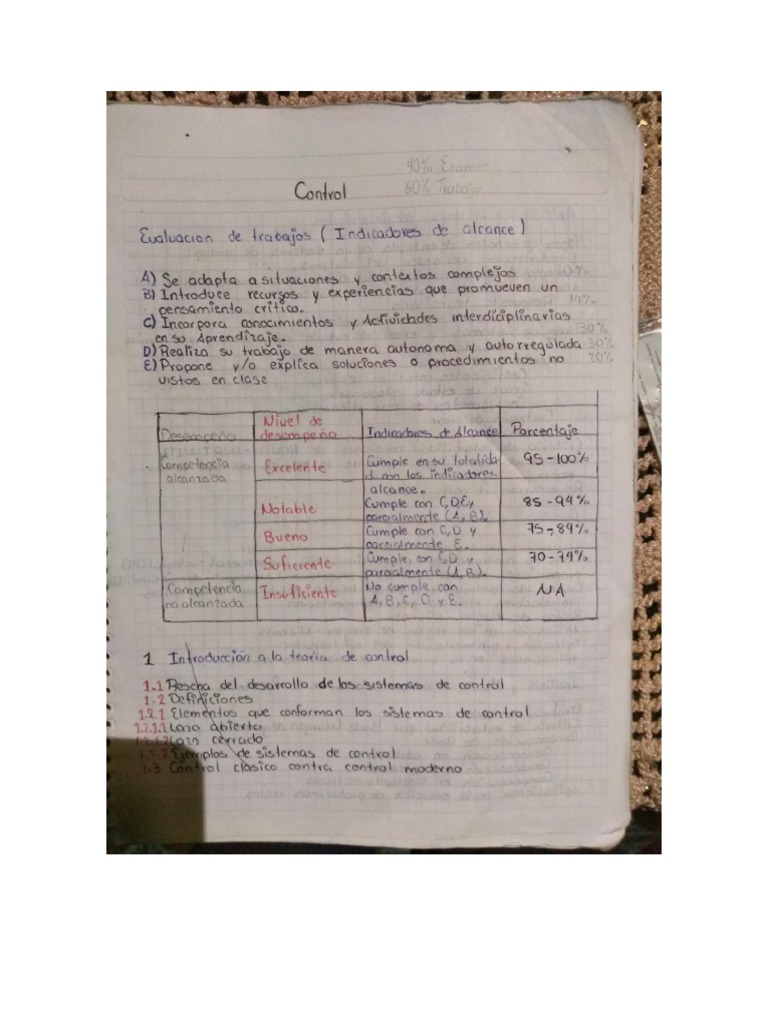 40% Examen
60% Trabajo
Control
Evaluacion de trabajos ( Indicadores de alcance )
A) Se adapta a situaciones y contextos complejos
B) Introduce recursos y experiencias que promueven un
pensamiento critico. 10%
C) Incorpora conocimientos y Actividades interdiciplinarias
en su Aprendizaje. 30%
D) Realiza su trabajo de manera autonoma y autorregulada 30%
E) Propone y/o explica soluciones o procedimientos no 20%
vistos en clase
Desempeño Nivel de desempeño Indicadores d Alcance Porcentaje
Competencia alcanzada Excelente Cumple en su totalida d con los indicadores alcance. 95-100%
Notable Cumple con C,D,E y parcialmente (A, B). 85-94%
Bueno Cumple con C, D y parcialmente E. 75-84%
Suficiente Cumple con C,D y parcialmente (A, B). 70-74%
Competencia no alcanzada Insuficiente No cumple con A, B, C, D y E. NA
1 Introducción a la teoria de control
1.1 Reseña del desarrollo de los sistemas de control
1.2 Definiciones
1.2.1 Elementos que conforman los sistemas de control
1.2.1.1 Lazo abierto
1.2.1.2 Lazo cerrado
1.2.2 Ejemplos de sistemas de control
1.3 Control clásico contra control moderno